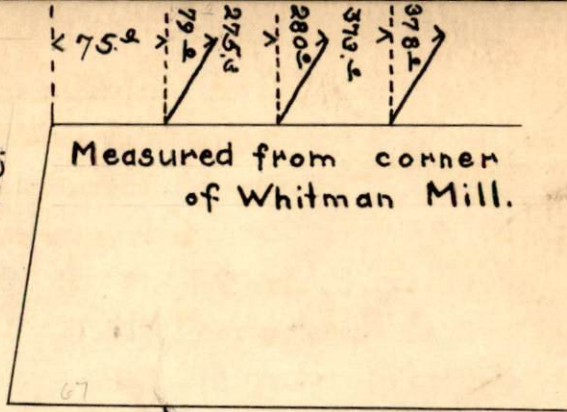 75.
79
275.
280
373.
378
Measured from corner
of Whitman Mill.
67